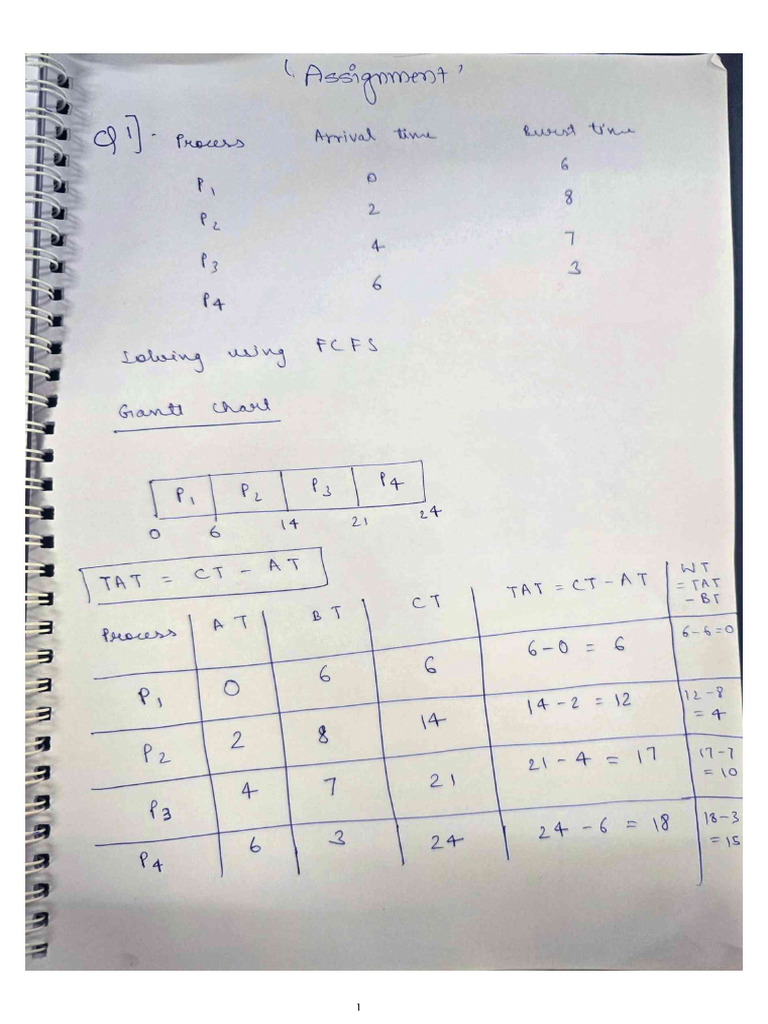 'Assignment'
Q1]. Process Arrival time Burst time
P1 0 6
P2 2 8
P3 4 7
P4 6 3
Solving using FCFS
Gantt chart
P1 P2 P3 P4
0 6 14 21 24
TAT = CT - AT
Process AT BT CT TAT = CT - AT WT = TAT - BT
P1 0 6 6 6-0 = 6 6-6=0
P2 2 8 14 14-2 = 12 12-8 = 4
P3 4 7 21 21-4 = 17 17-7 = 10
P4 6 3 24 24-6 = 18 18-3 = 15
1